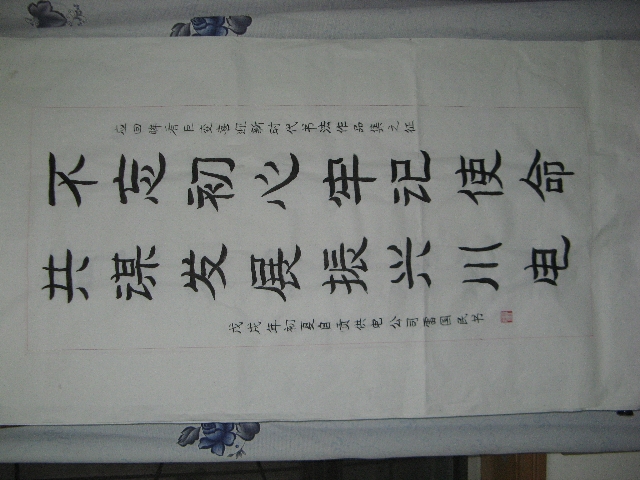 应回眸有巨变喜迎新时代书法作品集之征
不忘初心牢记使命
共谋发展振兴川电
戊戌年初夏自贡供电公司雷国民书